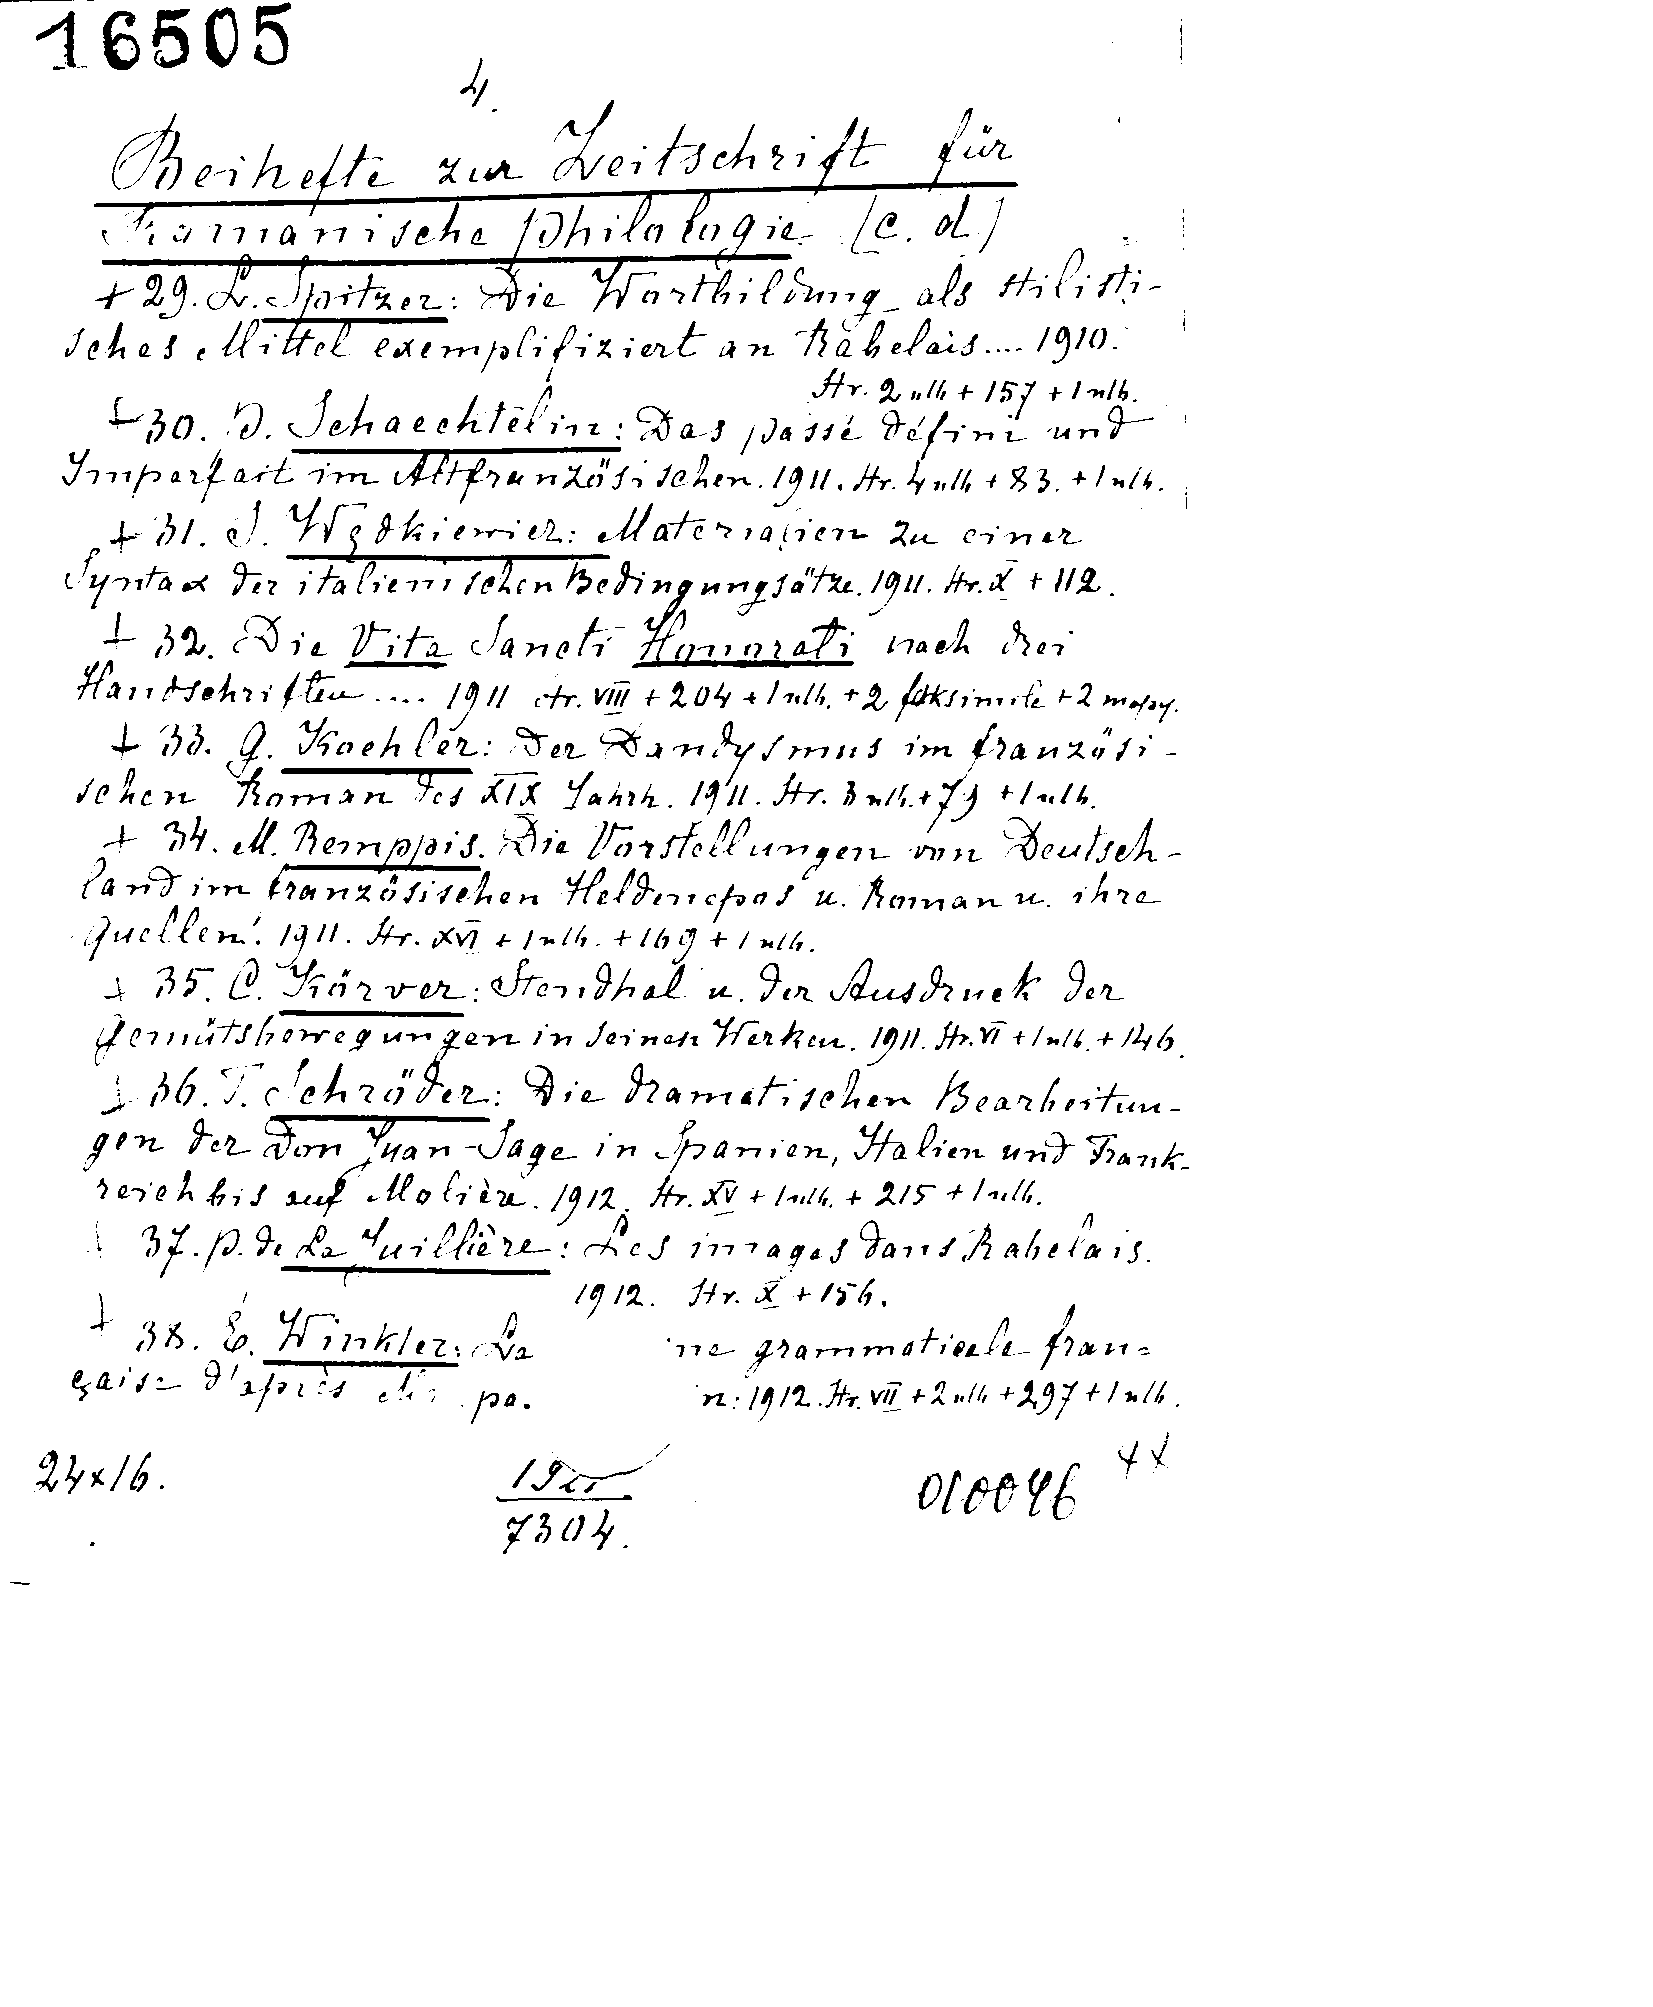 16505
4.
Beihefte zur Zeitschrift für
Romanische Philologie (c. d.)
+ 29. L. Spitzer: Die Wortbildung als stilisti-
sches Mittel exemplifiziert an Rabelais.... 1910.
Str. 2 nlb + 157 + 1 nlb.
+ 30. P. Schaechtelin: Das passé défini und
Imparfait im Altfranzösischen. 1911. Str. 4 nlb + 83. + 1 nlb.
+ 31. S. Wędkiewicz: Materialien zu einer
Syntax der italienischen Bedingungsätze. 1911. Str. X + 112.
+ 32. Die Vita Sancti Honorati nach drei
Handschriften .... 1911 str. VIII + 204 + 1 nlb. + 2 faksimile + 2 mapy.
+ 33. G. Koehler: Der Dandysmus im französi-
schen Roman des XIX Jahrh. 1911. Str. 3 nlb. + 79 + 1 nlb.
+ 34. M. Remppis. Die Vorstellungen von Deutsch-
land im französischen Heldenepos u. Roman u. ihre
Quellen. 1911. Str. XVI + 1 nlb. + 169 + 1 nlb.
+ 35. C. Körver: Stendhal u. der Ausdruck der
Gemütsbewegungen in seinen Werken. 1911. Str. VI + 1 nlb. + 146.
+ 36. T. Schröder: Die dramatischen Bearbeitun-
gen der Don Juan-Sage in Spanien, Italien und Frank-
reich bis auf Molière. 1912. Str. XV + 1 nlb. + 215 + 1 nlb.
37. P. de La Juillière: Les images dans Rabelais.
1912. Str. X + 156.
+ 38. E. Winkler: La ne grammaticale fran-
çaise d'après pa. n: 1912. Str. VII + 2 nlb + 297 + 1 nlb.
24x16.
7304.
010046 ++